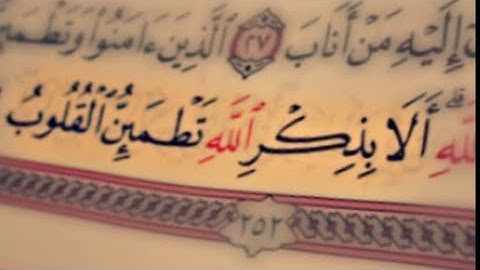 إِلَيْهِ مَنْ أَنَابَ ٢٧ ٱلَّذِينَ ءَامَنُوا۟ وَتَطْمَئِنُّ
ٱللَّهِ ۗ أَلَا بِذِكْرِ ٱللَّهِ تَطْمَئِنُّ ٱلْقُلُوبُ
٢٥٢